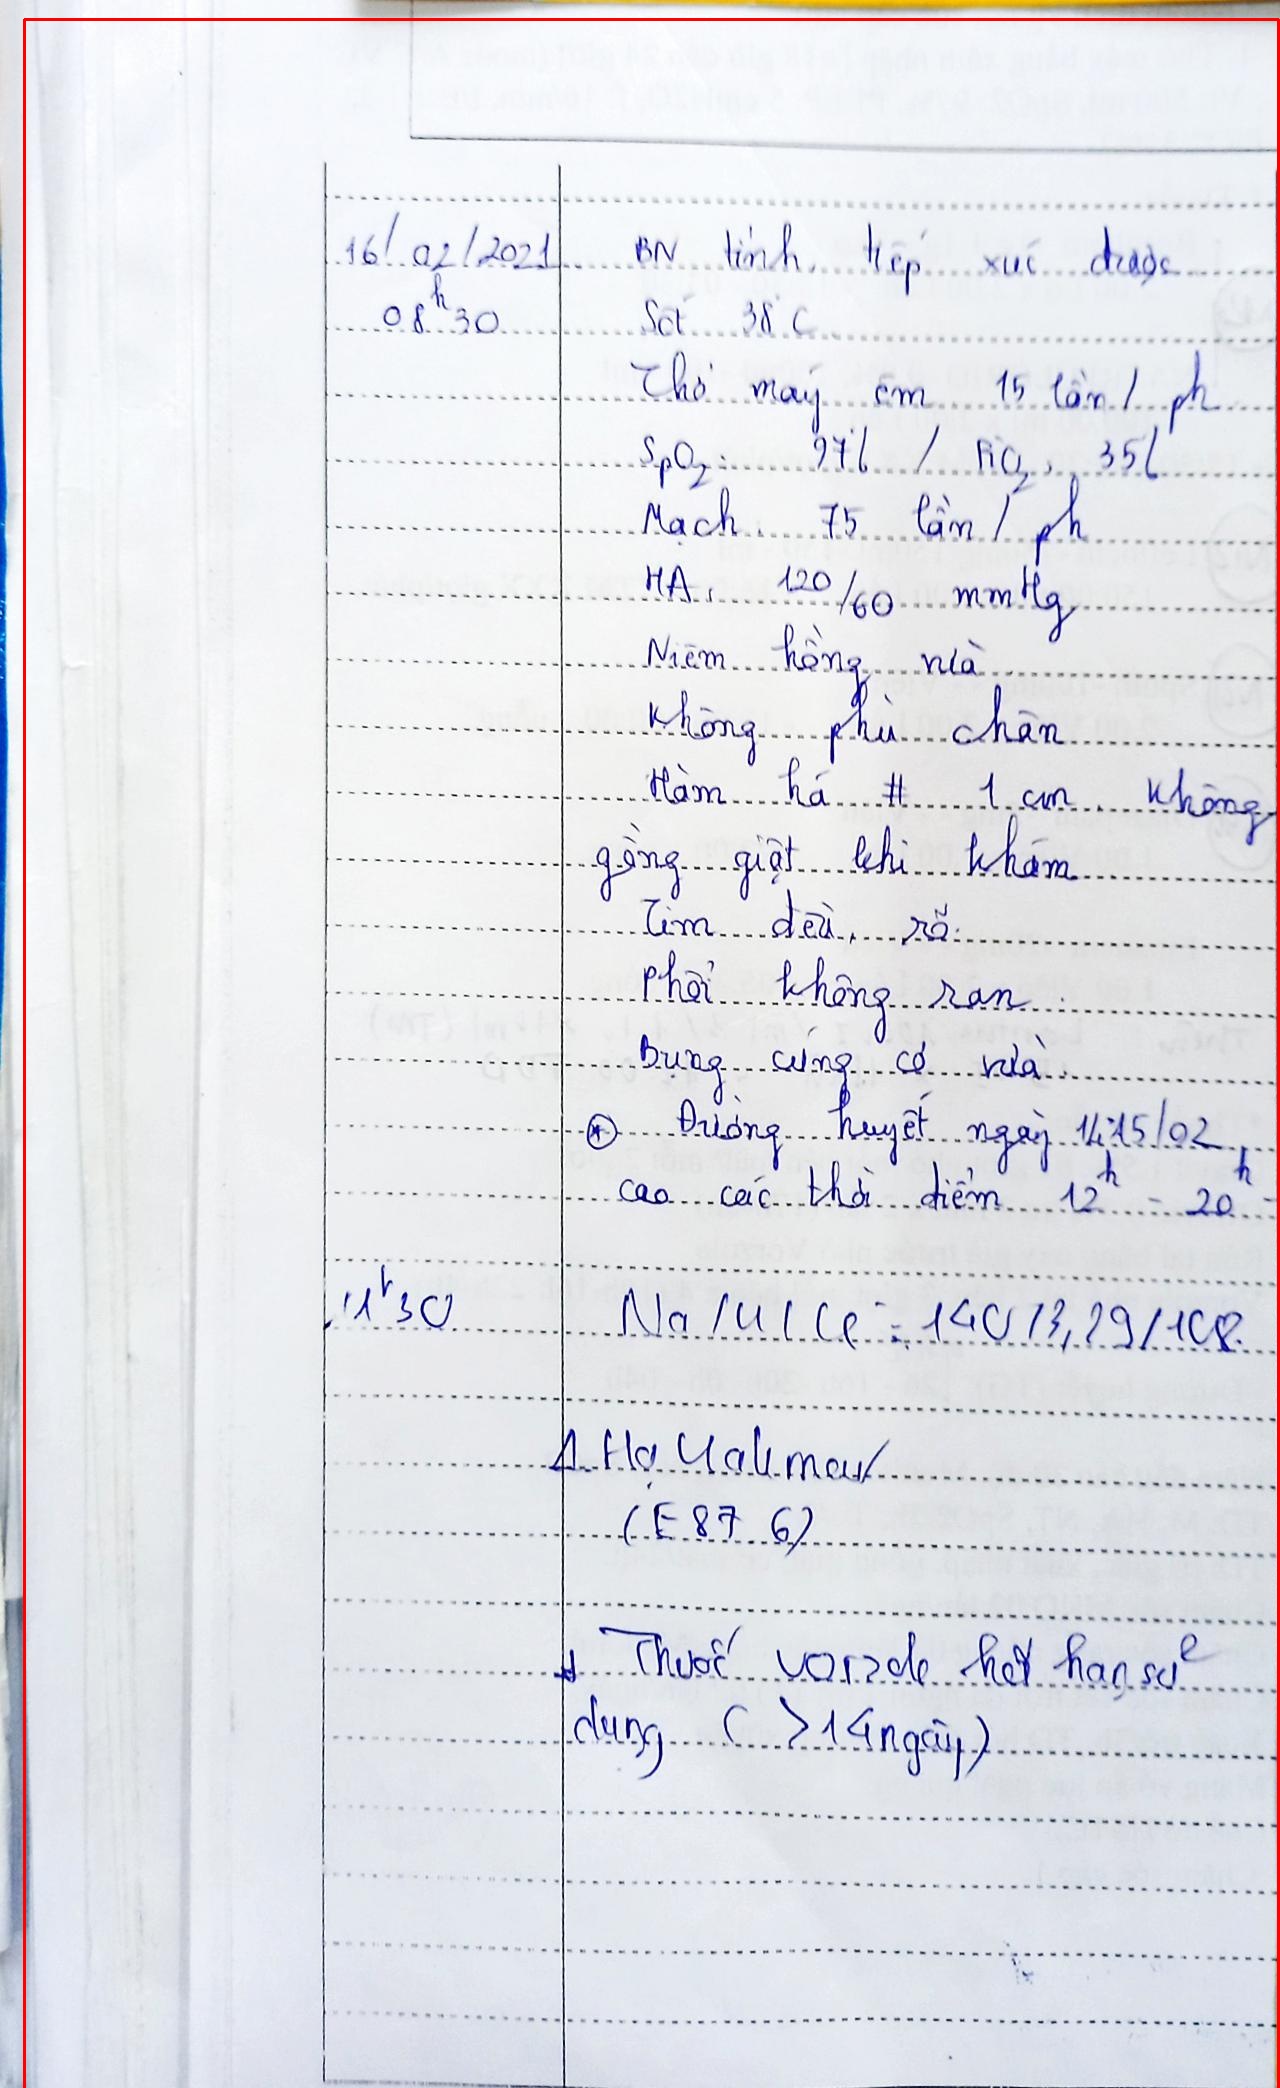 16/02/2021 BN tỉnh, tiếp xúc được
08h30 Sốt 38°C
Thở máy êm 15 lần/ph
SpO2: 97% / FiO2, 35%
Mạch. 75 lần/ph
HA, 120/60 mmHg
Niêm hồng vừa
Không phù chân
Hàm há # 1 cm. Không
gồng giật khi khám
Tim đều, rõ.
Phổi không ran.
Bụng cứng cơ vừa.
⊛ Đường huyết ngày 14,15/02
cao các thời điểm 12h - 20h
11h30 Na/K/Cl-: 140/3,29/108.
Δ. Hạ Kali máu
(E87.6)
Thuốc hết hạn sử
dụng (>14 ngày)